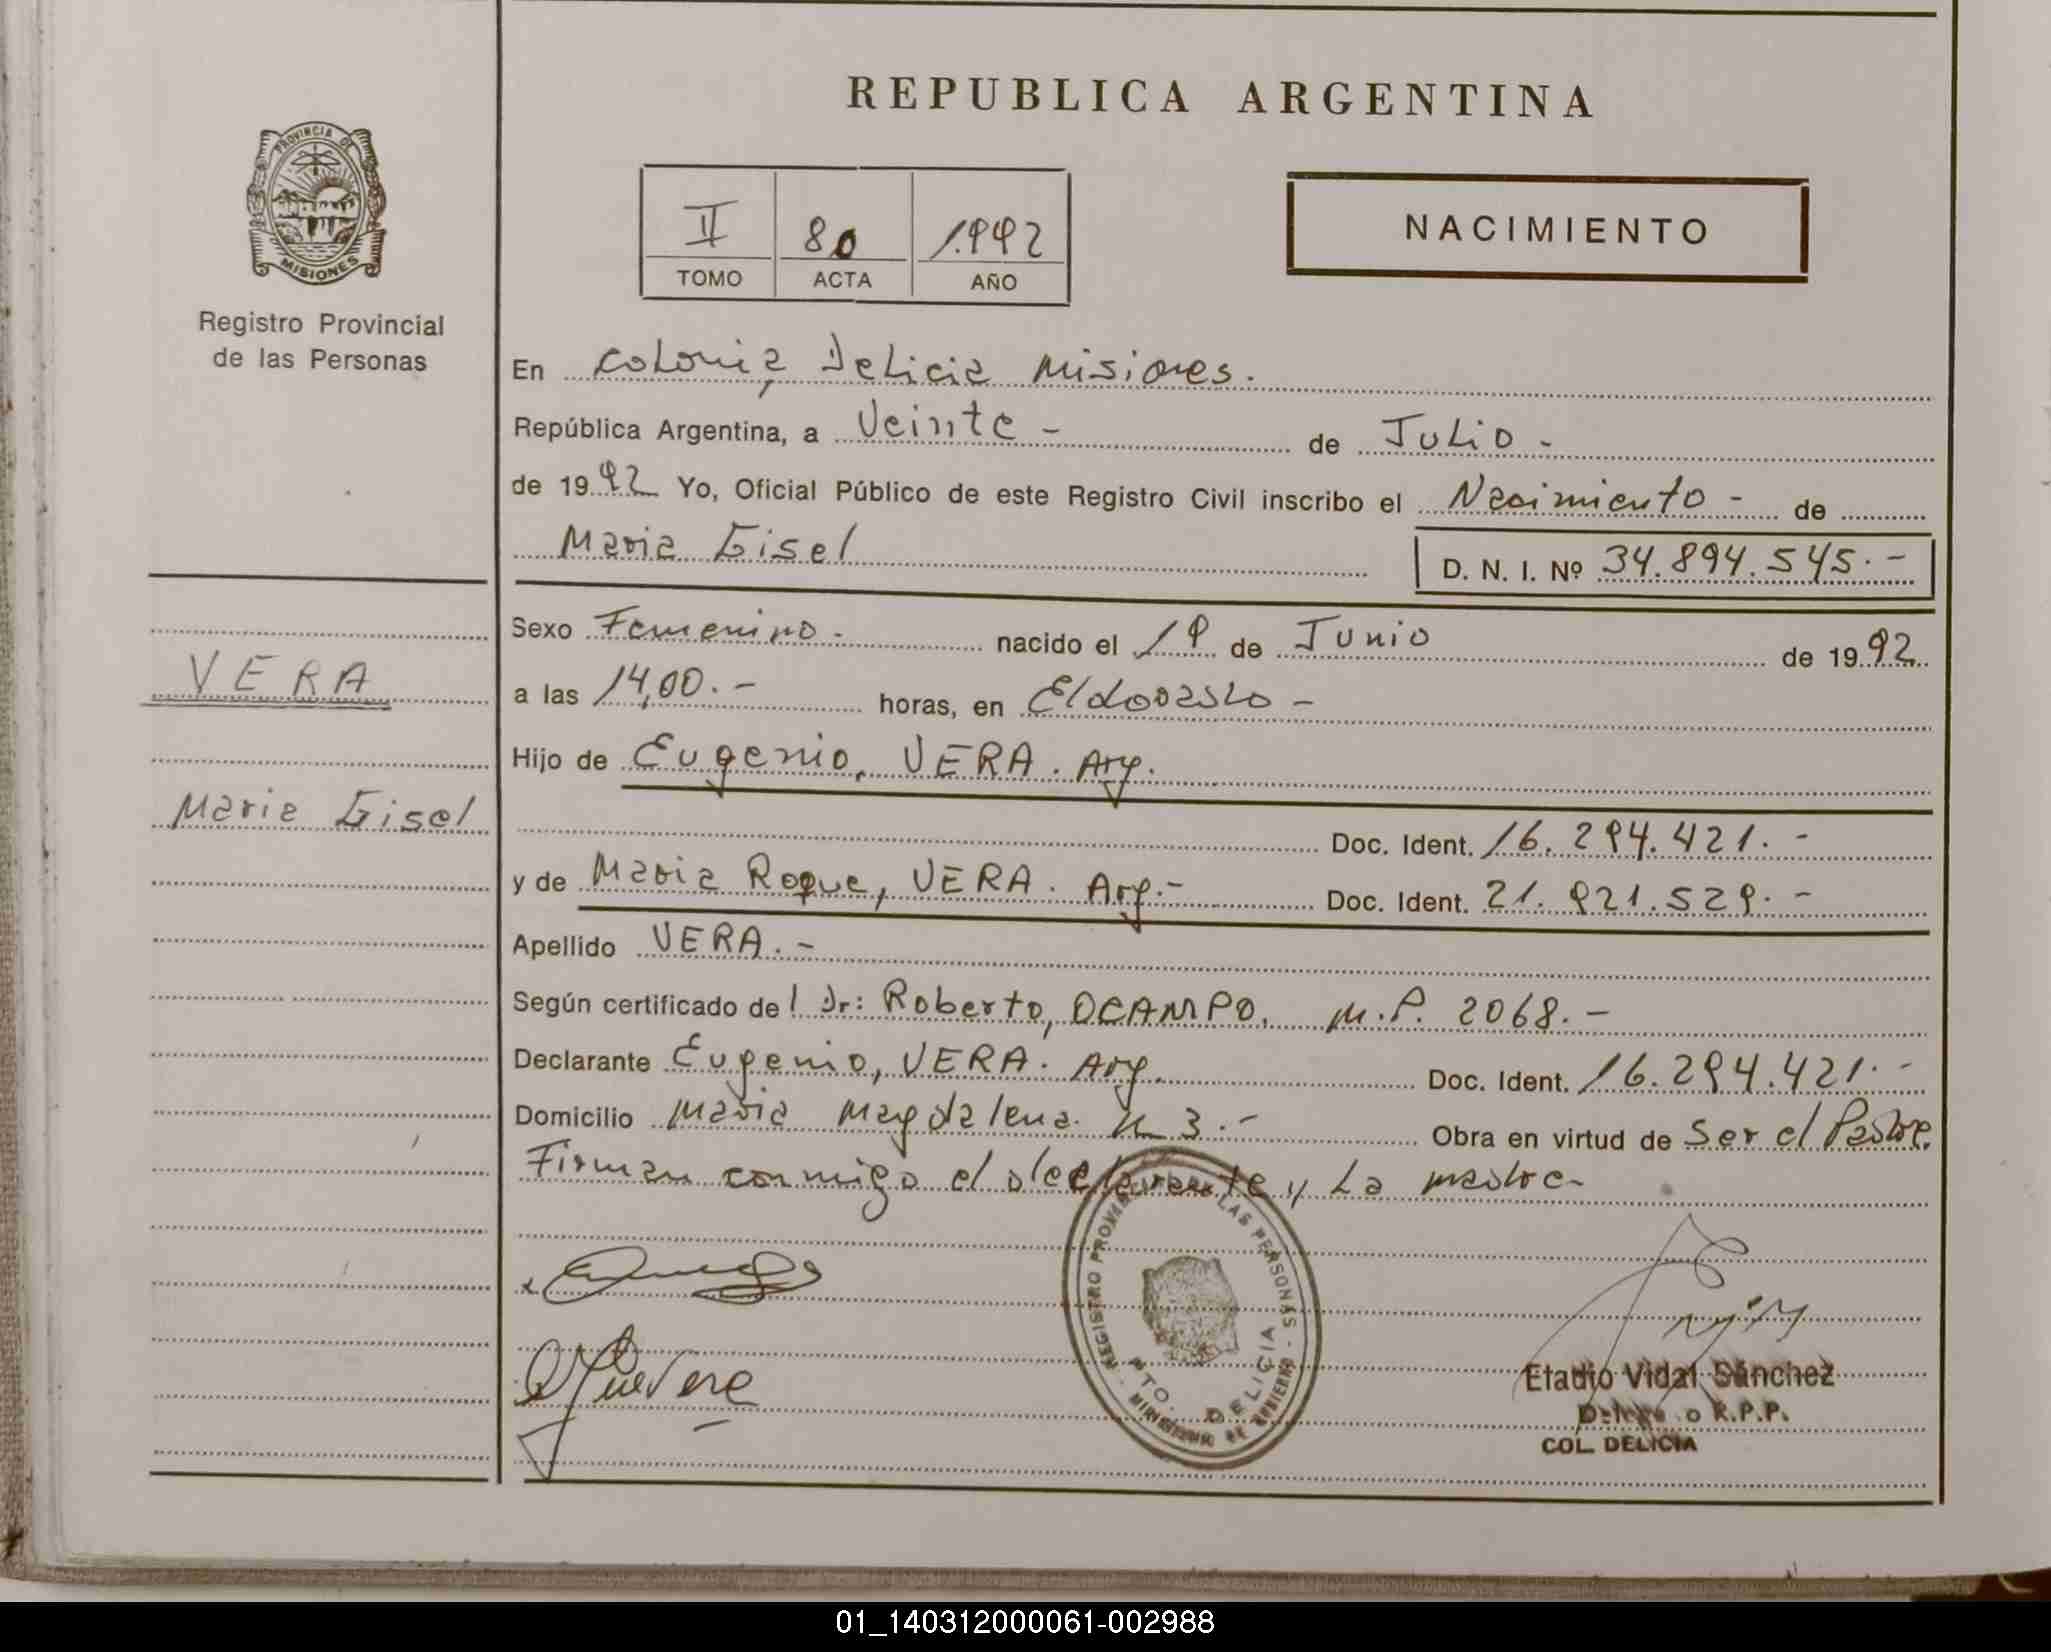 REPUBLICA ARGENTINA
PROVINCIA DE
MISIONES
Registro Provincial
de las Personas
II 80 1.992
TOMO ACTA AÑO
NACIMIENTO
En Colonia, Delicia Misiones.
República Argentina, a Veinte - de Julio -
de 1992 Yo, Oficial Público de este Registro Civil inscribo el Nacimiento - de
Maria Gisel D. N. I. Nº 34.894.545.-
Sexo Femenino - nacido el 19 de Junio de 1992
VERA
a las 14,00.- horas, en Eldorado -
Hijo de Eugenio, VERA. Arg.
Maria Gisel
Doc. Ident. 16.294.421.-
y de Maria Roque, VERA. Arg.- Doc. Ident. 21.921.529.-
Apellido VERA.-
Según certificado del Dr: Roberto, OCAMPO. M.P. 2068.-
Declarante Eugenio, VERA. Arg. Doc. Ident. 16.294.421.-
Domicilio Maria Magdalena K 3.- Obra en virtud de Ser el Padre.
Firman conmigo el declarante y La madre-
REGISTRO PROVINCIAL DE LAS PERSONAS - MINISTERIO DE GOBIERNO -
PTO DELICIA
Etadio Vidal Sánchez
R.P.P.
COL. DELICIA
01_140312000061-002988